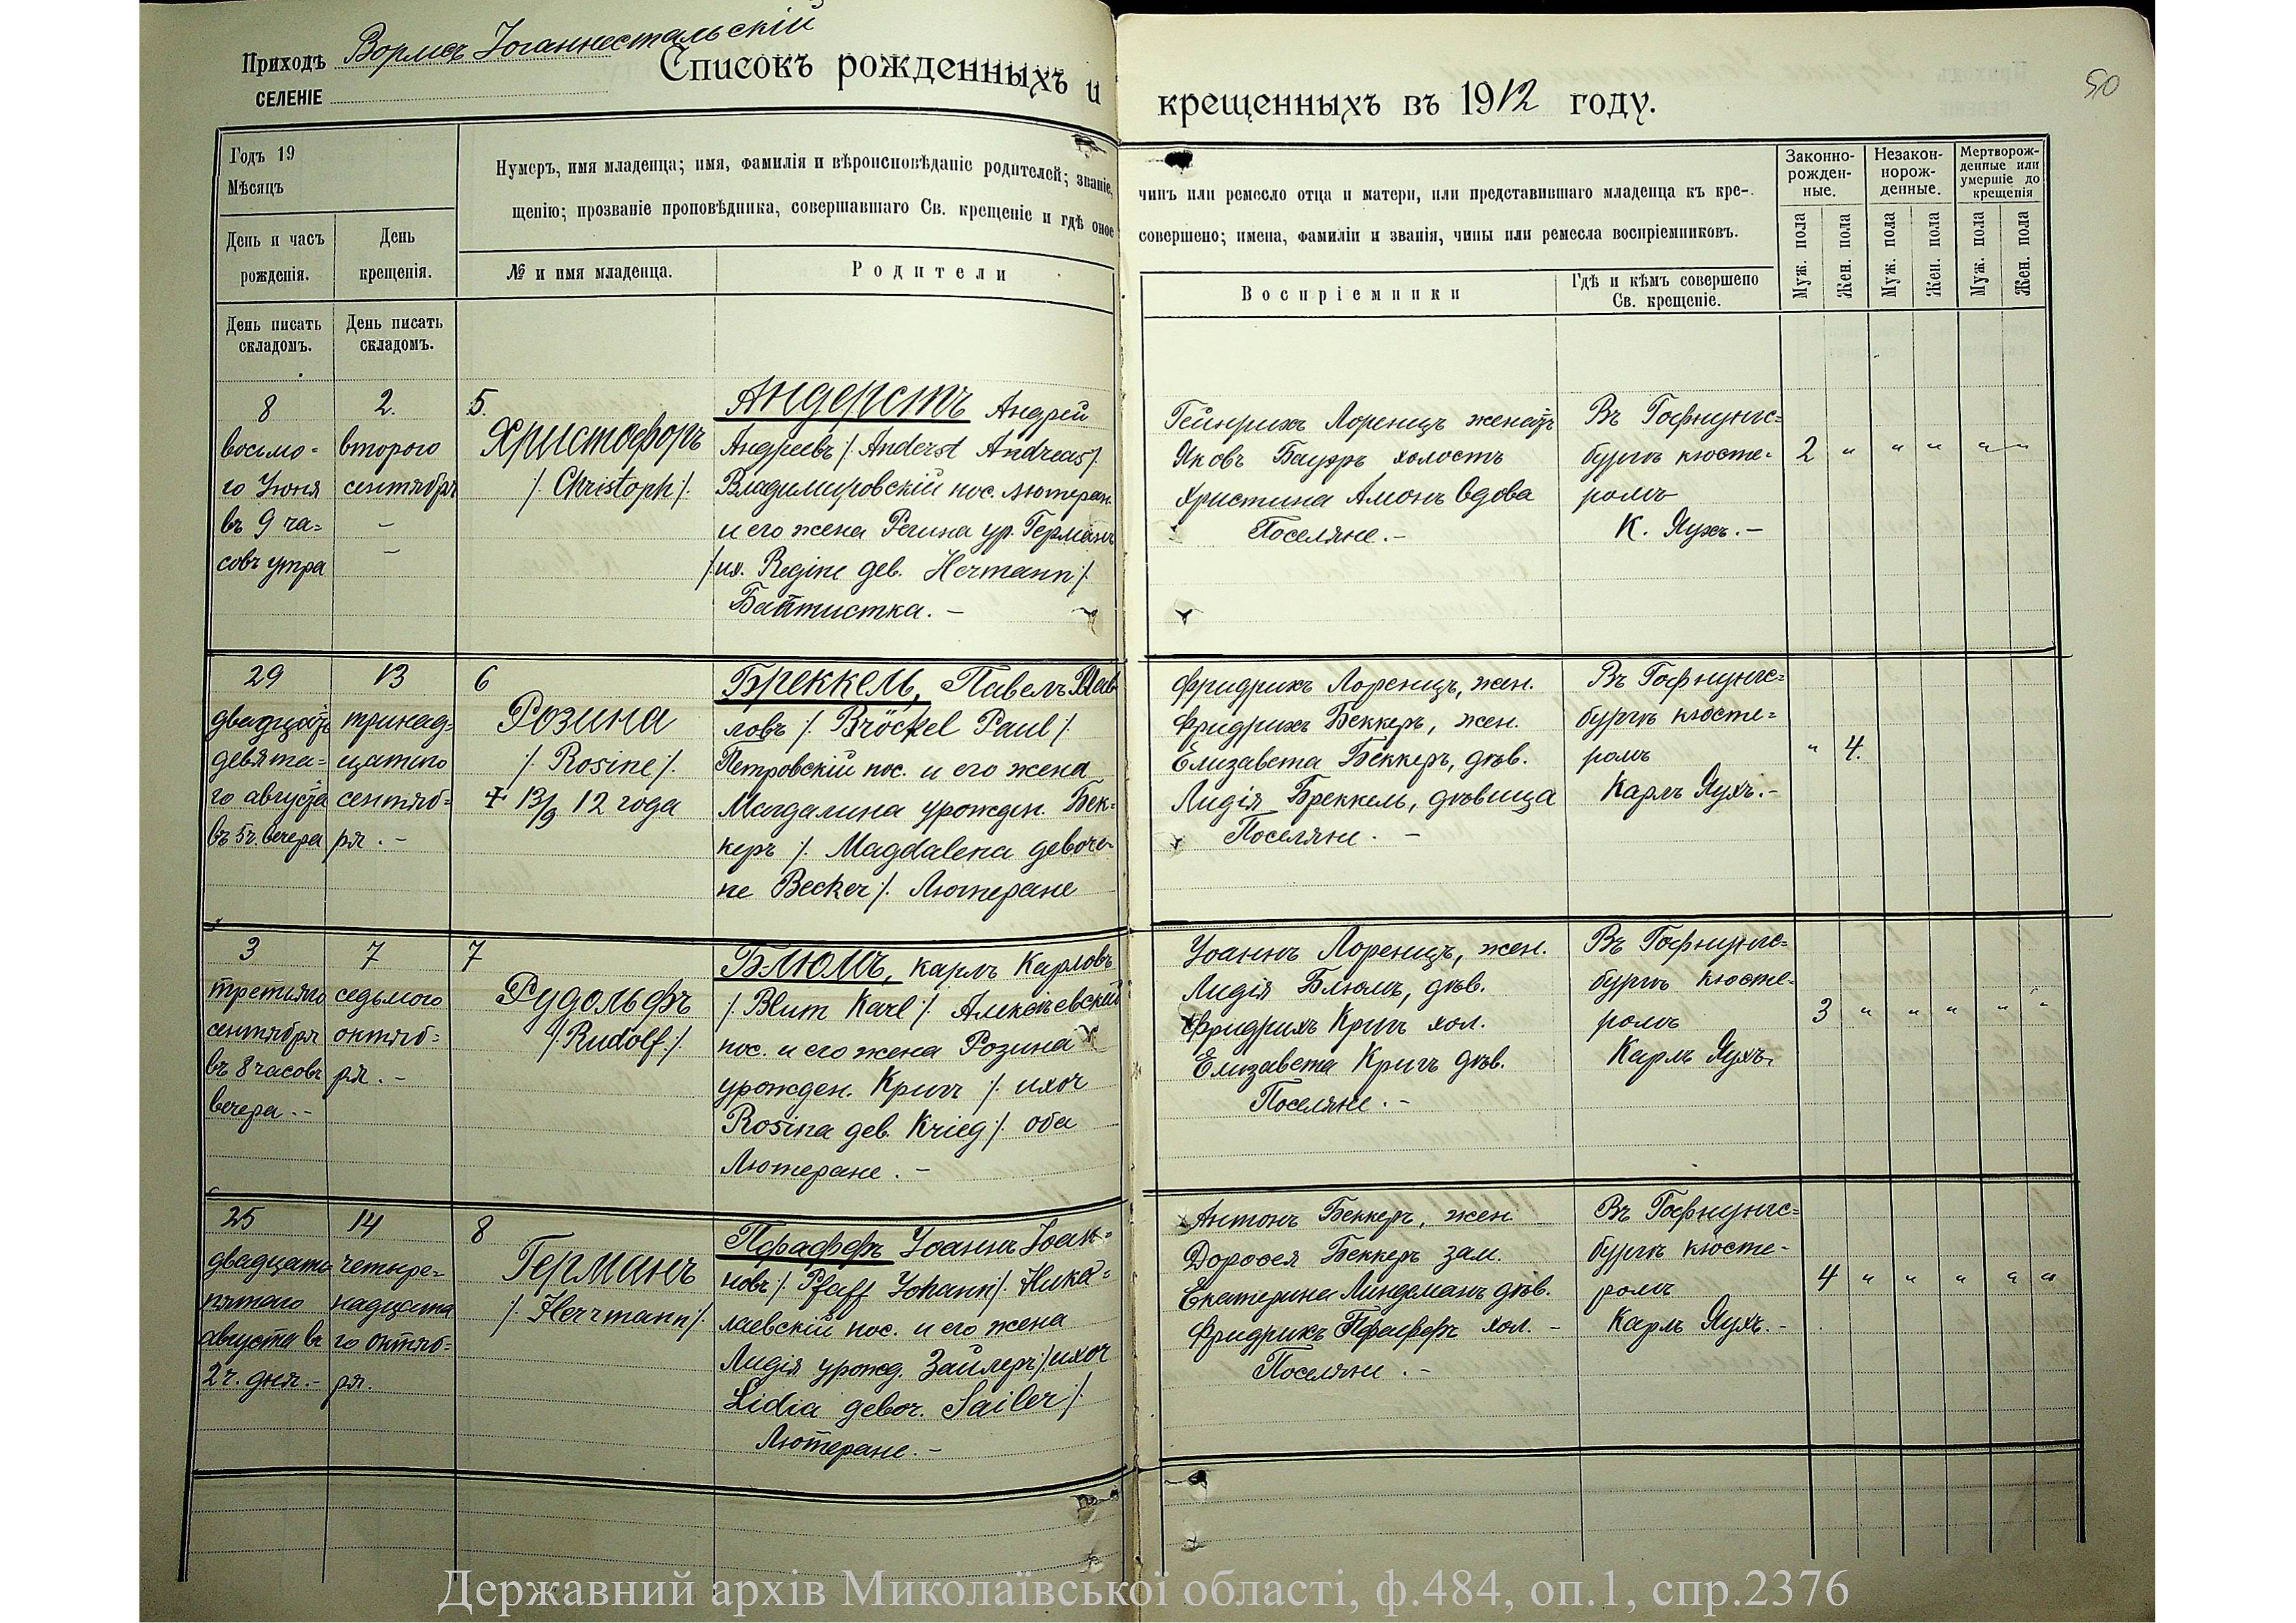 Приходъ Вормсъ Іоганнестальскій
СЕЛЕНІЕ
Списокъ рожденныхъ и крещенныхъ въ 1912 году.
50
Годъ 19
Мѣсяцъ
День и часъ рожденія.
День крещенія.
Нумеръ, имя младенца; имя, фамилія и вѣроисповѣданіе родителей; званіе,
чинъ или ремесло отца и матери, или представившаго младенца къ кре-
щенію; прозваніе проповѣдника, совершавшаго Св. крещеніе и гдѣ оное
совершено; имена, фамиліи и званія, чины или ремесла воспріемниковъ.
№ и имя младенца.
Родители
Воспріемники
Гдѣ и кѣмъ совершено
Св. крещеніе.
Законно-
рожден-
ные.
Незакон-
норож-
денные.
Мертворож-
денные или
умершіе до
крещенія
Муж. пола
Жен. пола
Муж. пола
Жен. пола
Муж. пола
Жен. пола
День писать
складомъ.
День писать
складомъ.
8
восьмо-
го Іюня
въ 9 ча=
совъ утра
2.
второго
сентября
–
–
5.
Христофоръ
/. Christoph /.
Андерстъ Андрей
Андреевъ /. Anderst Andreas /.
Владимировскій пос. лютеран.
и его жена Регина ур. Германъ
Regine geb. Hermann /.
Баптистка. –
Гейнрихъ Лоренцъ женатъ
Яковъ Бауэръ холостъ
Христина Амонъ вдова
Поселяне. –
Въ Гофнунгс=
бургѣ кюсте-
ромъ
К. Яухъ. –
2 " " " " "
29
двадцать
девята=
го августа
въ 5 ч. вечера
13
тринад=
цатаго
сентяб=
ря . –
6
Розина
/. Rosine /.
+ 13/9 12 года
Бреккель, Павелъ Пав
ловъ /. Bröckel Paul /.
Петровскій пос. и его жена
Магдалина урожден. Бек-
керъ /. Magdalena geborе-
ne Becker /. Лютеране
Фридрихъ Лоренцъ, жен.
Фридрихъ Беккеръ, жен.
Елизавета Беккеръ, дѣв.
Лидія Бреккель, дѣвица
Поселяне . –
Въ Гофнунгс=
бургѣ кюсте=
ромъ
Карлъ Яухъ. –
" 4.
3
третьяго
сентября
въ 8 часовъ
вечера . –
7
седьмого
октяб=
ря . –
7
Рудольфъ
/. Rudolf /.
Блюмъ, Карлъ Карловъ
/. Blum Karl /. Алексѣевскій
пос. и его жена Розина
урожден. Кригъ /.
Rosina geb. Krieg /. оба
Лютеране . –
Іоаннъ Лоренцъ, жен.
Лидія Блюмъ, дѣв.
Фридрихъ Кригъ хол.
Елизавета Кригъ дѣв.
Поселяне . –
Въ Гофнунгс=
бургѣ кюсте-
ромъ
Карлъ Яухъ.
3 " " " " "
25
двадцать
пятаго
августа въ
2 ч. дня. –
14
четыре-
надцата
го октяб=
ря.
8
Германъ
/. Herrmann /.
Пфаффъ Іоаннъ Іоан-
новъ /. Pfaff Johann /. Нико-
лаевскій пос. и его жена
Лидія урожд. Зайлеръ /.
Lidia gebor. Sailer /.
Лютеране. –
Антонъ Беккеръ, жен.
Доровея Беккеръ зам.
Екатерина Линдеманъ дѣв.
Фридрихъ Пфаффъ хол. –
Поселяне . –
Въ Гофнунгс=
бургѣ кюсте-
ромъ
Карлъ Яухъ. –
4 " " " " "
Державний архів Миколаївської області, ф.484, оп.1, спр.2376